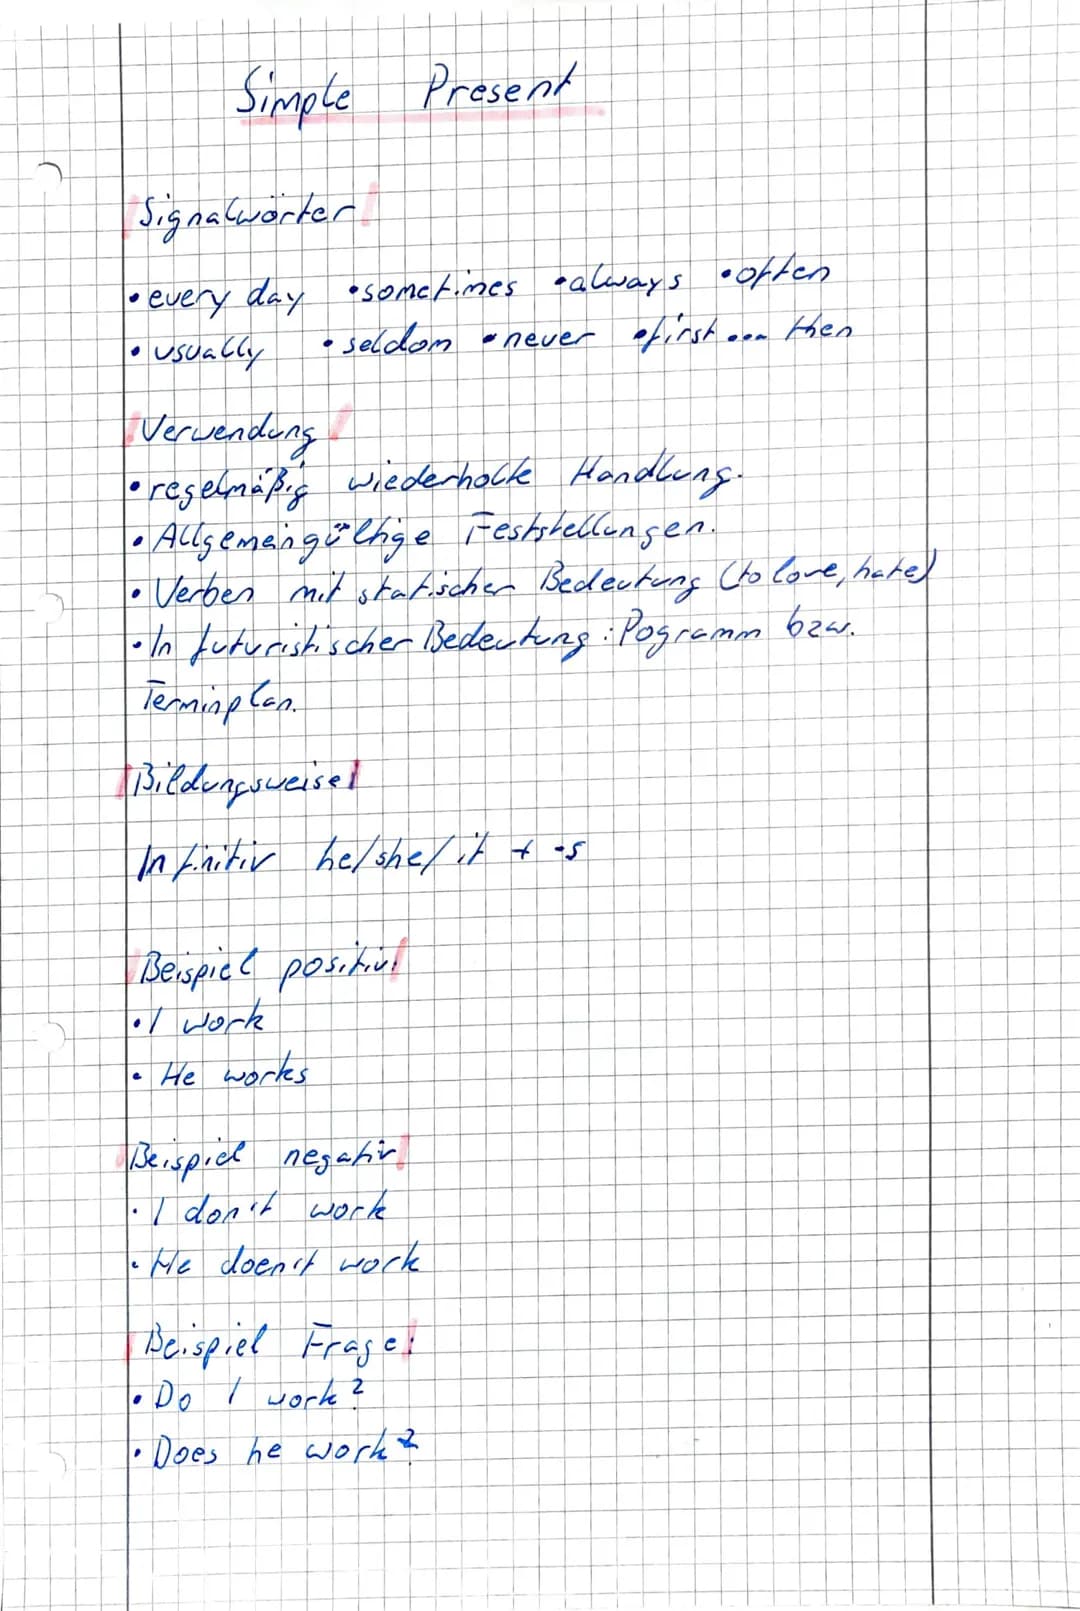 Simple Present
Signalwörter
• every day • sometimes • always • often
• usually • seldom • never • first ... then
Verwendung
• regelmäßig wiederholte Handlung.
• Allgemeingültige Feststellungen.
• Verben mit statischer Bedeutung (to love, hate)
• In futuristischer Bedeutung: Pogramm bzw.
Terminplan.
Bildungsweise
Infinitiv he/she/it + -s
Beispiel positiv
• I work
• He works
Beispiel negativ
• I don't work
• He doen't work
Beispiel Frage:
• Do I work?
• Does he work?